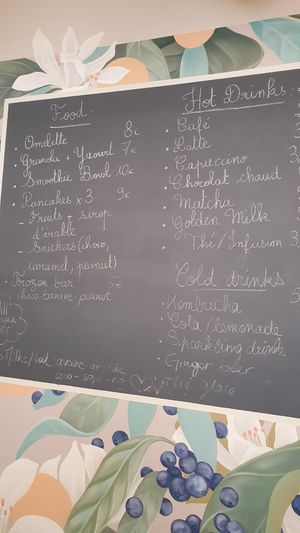 Food :
. Omelette 8€
. Granola + Yaourt 7€
. Smoothie Bowl 10€
. Pancakes x 3 9€
- Fruits + sirop
d'érable
- Snickers (choco,
caramel, peanut)
. Frozen bar 5€
choco-banane-peanut
coco-soja-riz
Hot Drinks :
. Café
. Latte
. Capuccino 3
. Chocolat chaud
. Matcha
. Golden Milk
. Thé/Infusion 3
Cold drinks
. Kombucha
. Cola/lemonade
. Sparkling drink
. Ginger beer
. Thé glacé